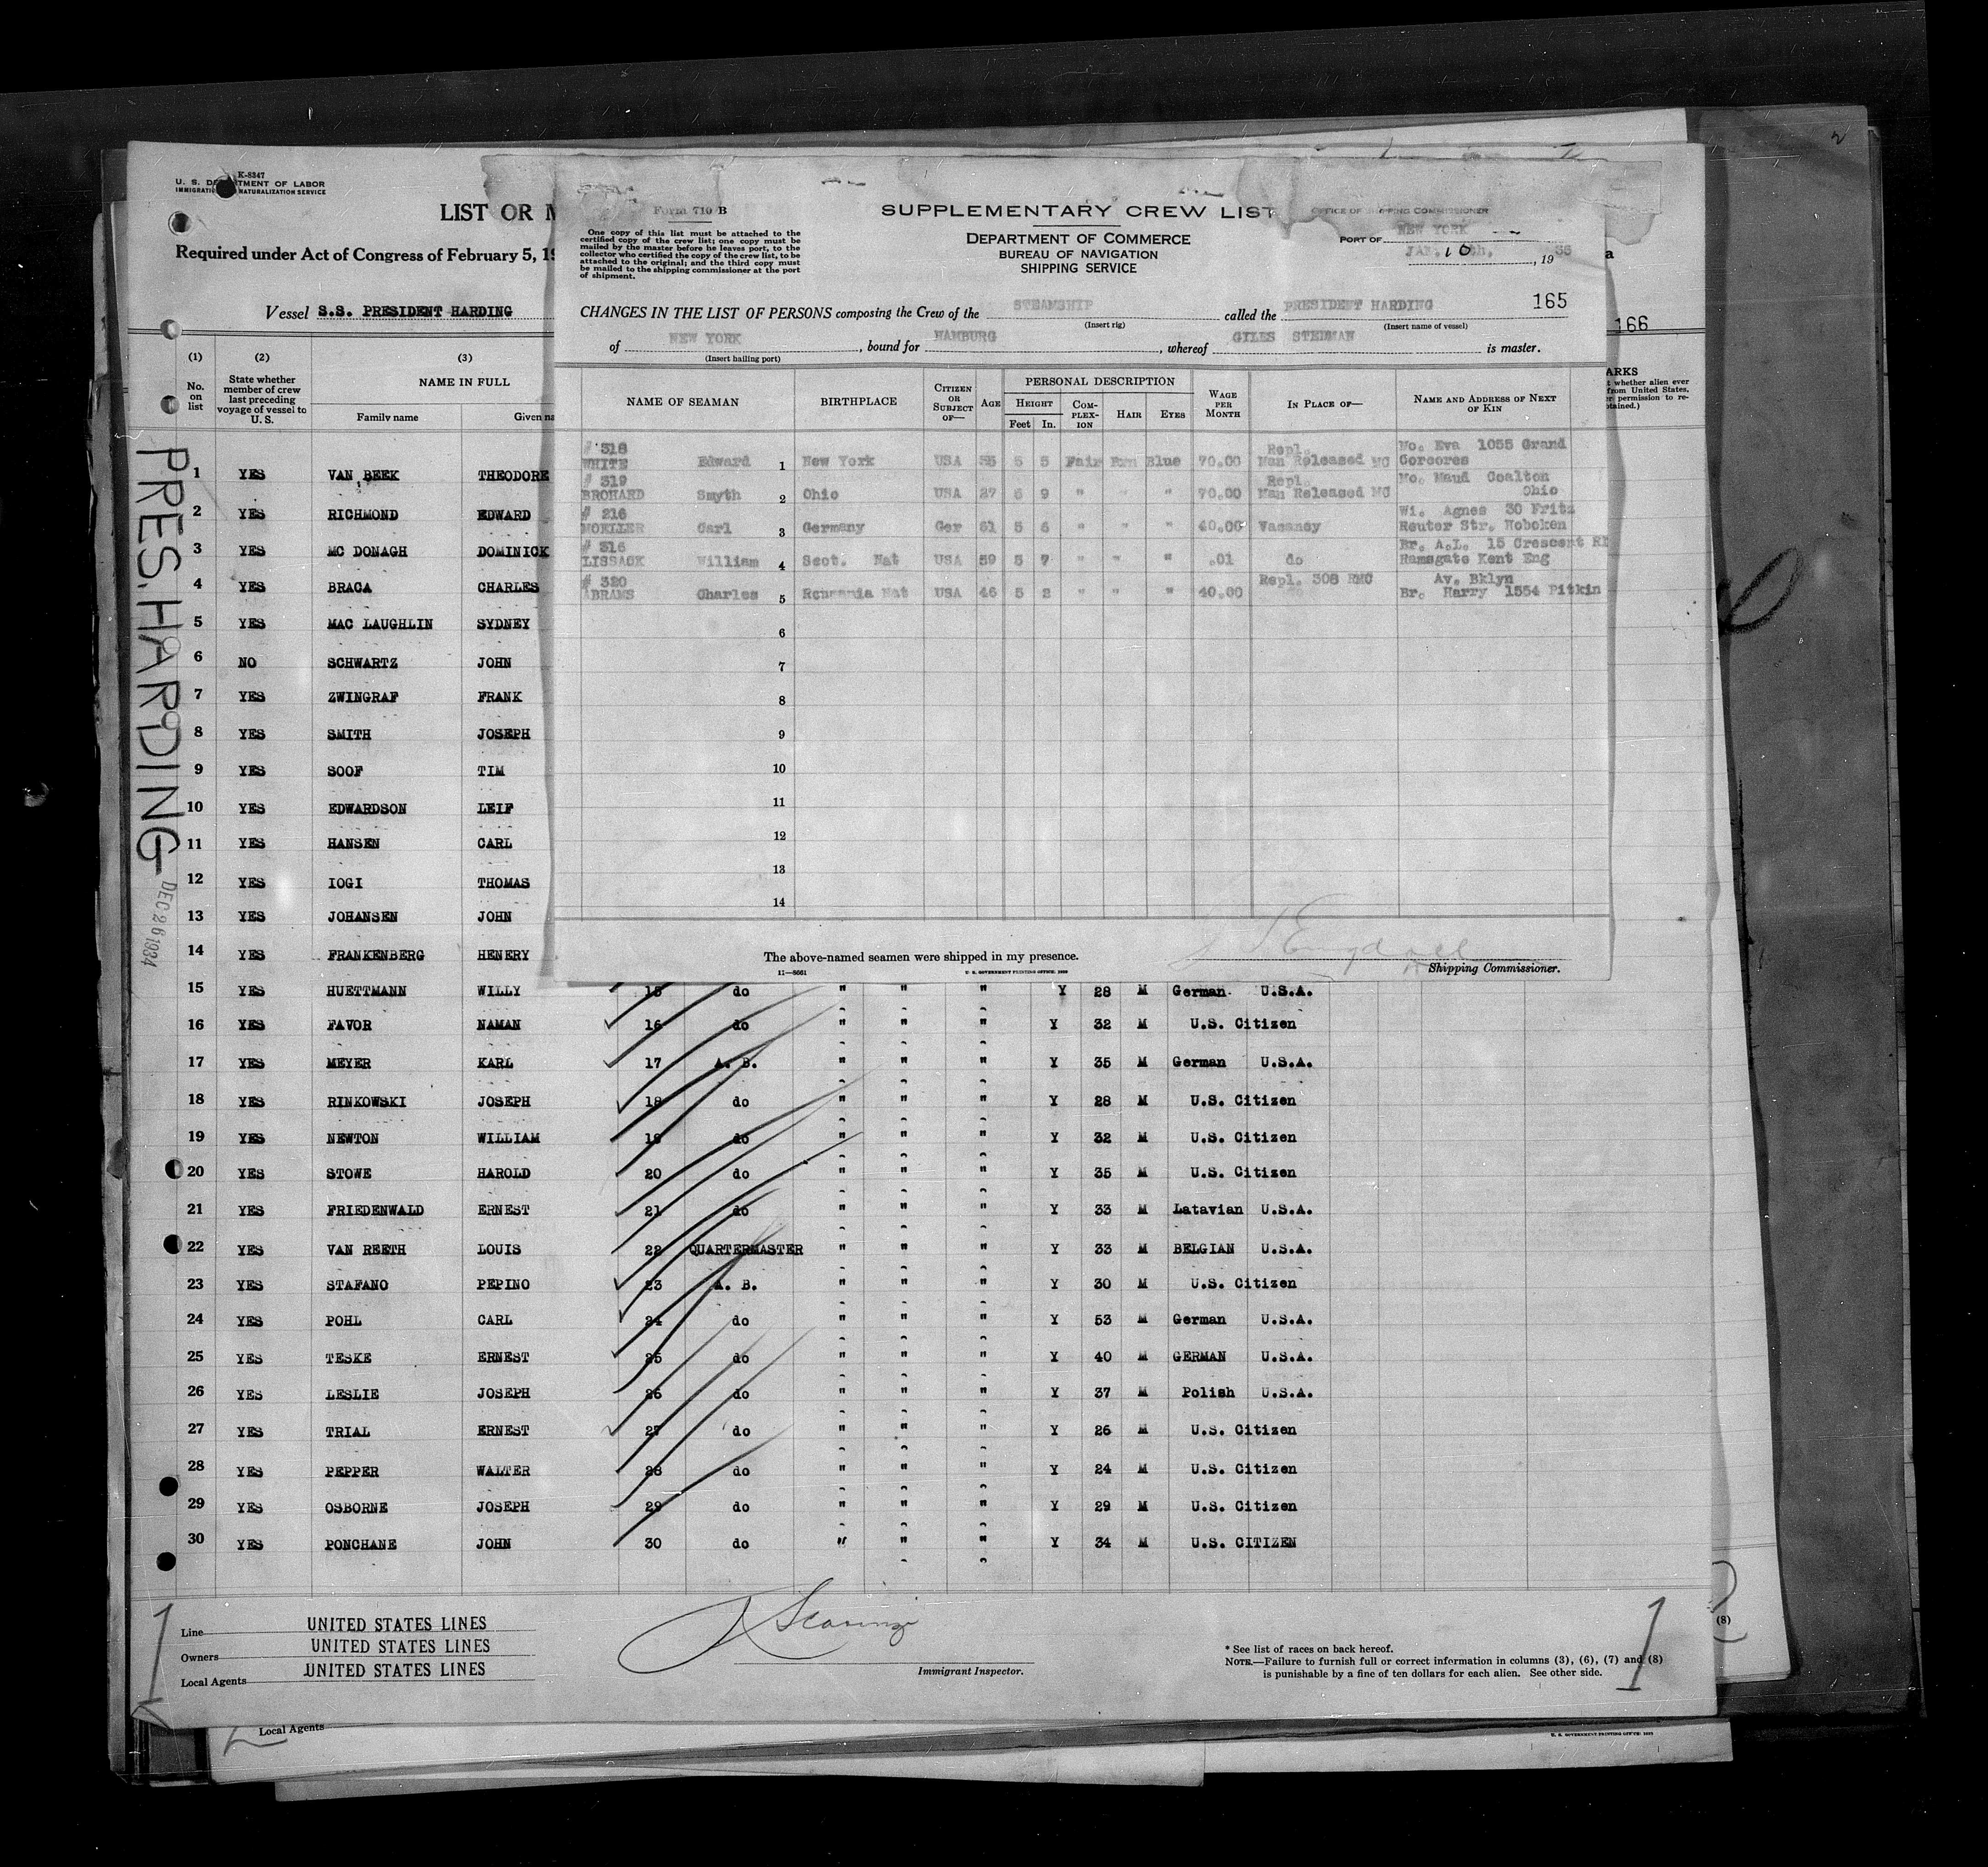 K-8347
U. S. DEPARTMENT OF LABOR
IMMIGRATION NATURALIZATION SERVICE
LIST OR M
Required under Act of Congress of February 5, 19
Vessel S.S. PRESIDENT HARDING
166
(1) (2) (3)
No. on list
State whether member of crew last preceding voyage of vessel to U. S.
NAME IN FULL
Family name Given na
ARKS
t whether alien ever
from United States,
er permission to re-
otained.)
PRES. HARDING
DEC 26 1934
1 YES VAN BEEK THEODORE
2 YES RICHMOND EDWARD
3 YES MC DONAGH DOMINICK
4 YES BRAGA CHARLES
5 YES MAC LAUGHLIN SYDNEY
6 NO SCHWARTZ JOHN
7 YES ZWINGRAF FRANK
8 YES SMITH JOSEPH
9 YES SOOF TIM
10 YES EDWARDSON LEIF
11 YES HANSEN CARL
12 YES IOGI THOMAS
13 YES JOHANSEN JOHN
14 YES FRANKENBERG HENERY
Form 710 B
One copy of this list must be attached to the
certified copy of the crew list; one copy must be
mailed by the master before he leaves port, to the
collector who certified the copy of the crew list, to be
attached to the original; and the third copy must
be mailed to the shipping commissioner at the port
of shipment.
SUPPLEMENTARY CREW LIST
DEPARTMENT OF COMMERCE
BUREAU OF NAVIGATION
SHIPPING SERVICE
OFFICE OF SHIPPING COMMISSIONER
PORT OF NEW YORK
JAN. 10th, , 19
165
CHANGES IN THE LIST OF PERSONS composing the Crew of the STEAMSHIP called the PRESIDENT HARDING
(Insert rig) (Insert name of vessel)
of NEW YORK , bound for HAMBURG , whereof GILES STEDMAN is master.
(Insert hailing port)
NAME OF SEAMAN BIRTHPLACE CITIZEN OR SUBJECT OF— AGE PERSONAL DESCRIPTION WAGE PER MONTH IN PLACE OF— NAME AND ADDRESS OF NEXT OF KIN
HEIGHT COM-PLEX-ION HAIR EYES
Feet In.
# 318 Repl. Mo. Eva 1055 Grand
WHITE Edward 1 New York USA 5 5 Fair Brn Blue 70.00 Man Released MC
# 319 Repl. Mo. Maud Coalton
BROHARD Smyth 2 Ohio USA 27 9 " " " 70.00 Man Released MC Ohio
# 216 Wi. Agnes 30 Fritz
MOELLER Carl 3 Germany Ger 5 6 " " " 40.00 Vacancy Reuter Str. Hoboken
# 316 Br. A.L. 15 Crescent R
LISSACK William 4 Scot. Nat USA 59 5 7 " " " .01 do Ramsgate Kent Eng
# 320 Repl. 308 RMC Av. Bklyn
ABRAMS Charles 5 Roumania Nat USA 46 5 2 " " " 40.00 do Br. Harry 1554 Pitkin
6
7
8
9
10
11
12
13
14
The above-named seamen were shipped in my presence.
Shipping Commissioner.
11—8661 U. S. GOVERNMENT PRINTING OFFICE:
15 YES HUETTMANN WILLY 15 do " " " Y 28 M German U.S.A.
16 YES FAVOR NAMAN 16 do " " " Y 32 M U.S. Citizen
17 YES MEYER KARL 17 A. B. " " " Y 35 M German U.S.A.
18 YES RINKOWSKI JOSEPH 18 do " " " Y 28 M U.S. Citizen
19 YES NEWTON WILLIAM 19 do " " " Y 32 M U.S. Citizen
20 YES STOWE HAROLD 20 do " " " Y 35 M U.S. Citizen
21 YES FRIEDENWALD ERNEST 21 do " " " Y 33 M Latavian U.S.A.
22 YES VAN REETH LOUIS 22 QUARTERMASTER " " " Y 33 M BELGIAN U.S.A.
23 YES STAFANO PEPINO 23 A. B. " " " Y 30 M U.S. Citizen
24 YES POHL CARL 24 do " " " Y 53 M German U.S.A.
25 YES TESKE ERNEST 25 do " " " Y 40 M GERMAN U.S.A.
26 YES LESLIE JOSEPH 26 do " " " Y 37 M Polish U.S.A.
27 YES TRIAL ERNEST 27 do " " " Y 26 M U.S. Citizen
28 YES PEPPER WALTER 28 do " " " Y 24 M U.S. Citizen
29 YES OSBORNE JOSEPH 29 do " " " Y 29 M U.S. Citizen
30 YES PONCHANE JOHN 30 do " " " Y 34 M U.S. CITIZEN
Line UNITED STATES LINES
Owners UNITED STATES LINES
Local Agents UNITED STATES LINES
Immigrant Inspector.
* See list of races on back hereof.
NOTE.—Failure to furnish full or correct information in columns (3), (6), (7) and (8)
is punishable by a fine of ten dollars for each alien. See other side.
(8)
Local Agents